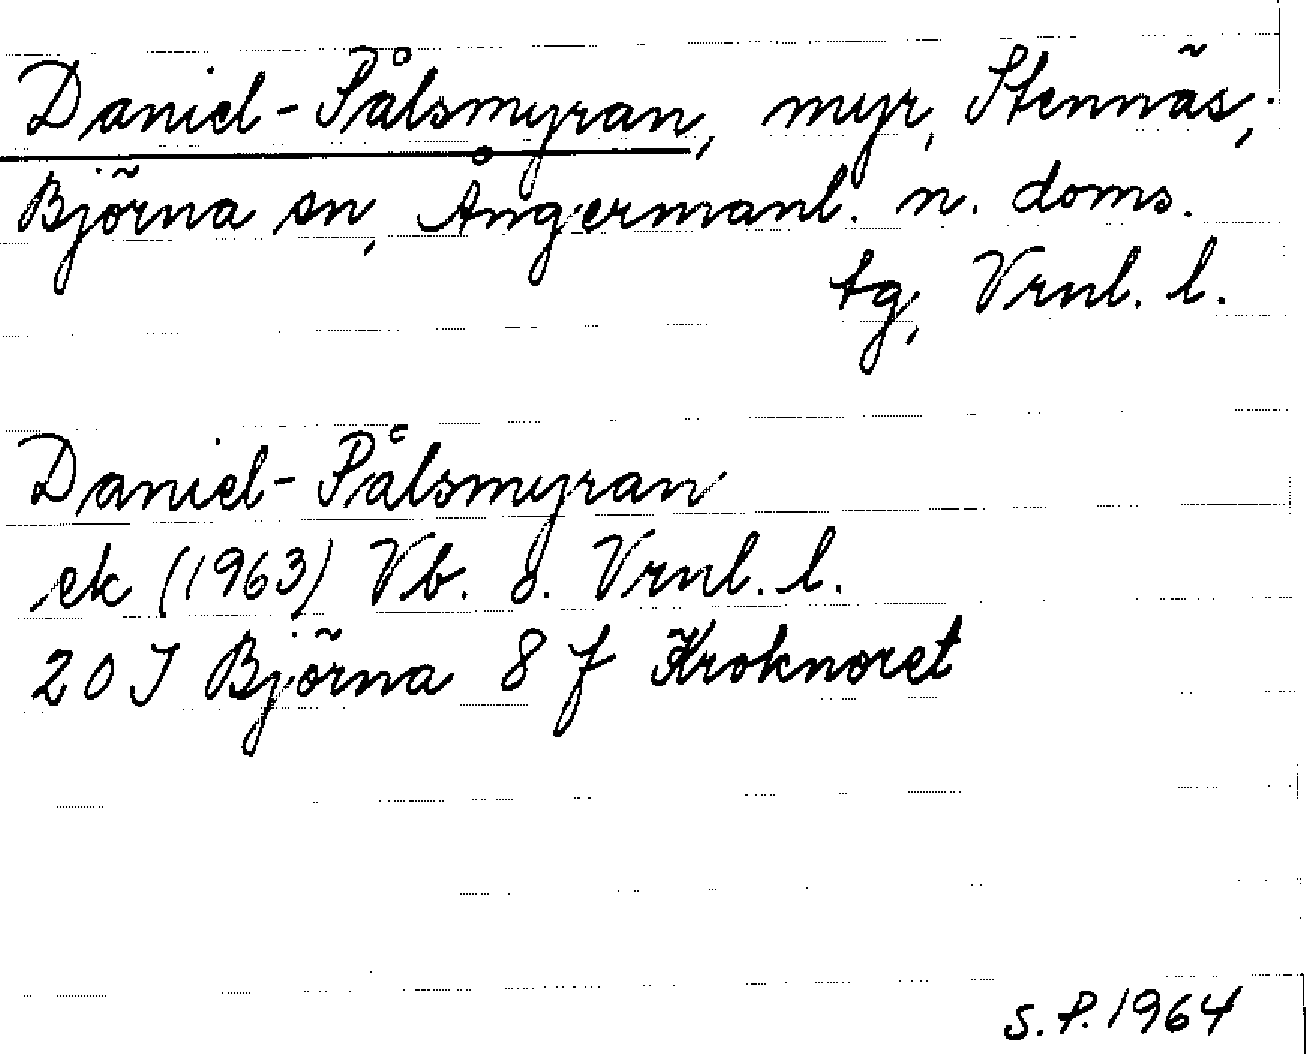 Daniel-Pålsmyran, myr, Stennäs,
Björna sn, Ångermanl. n. doms.
tg, Vrnl. l.
Daniel-Pålsmyran
ek (1963) Vb. o. Vrnl. l.
20 J Björna 8 f Kroknoret
S.P. 1964